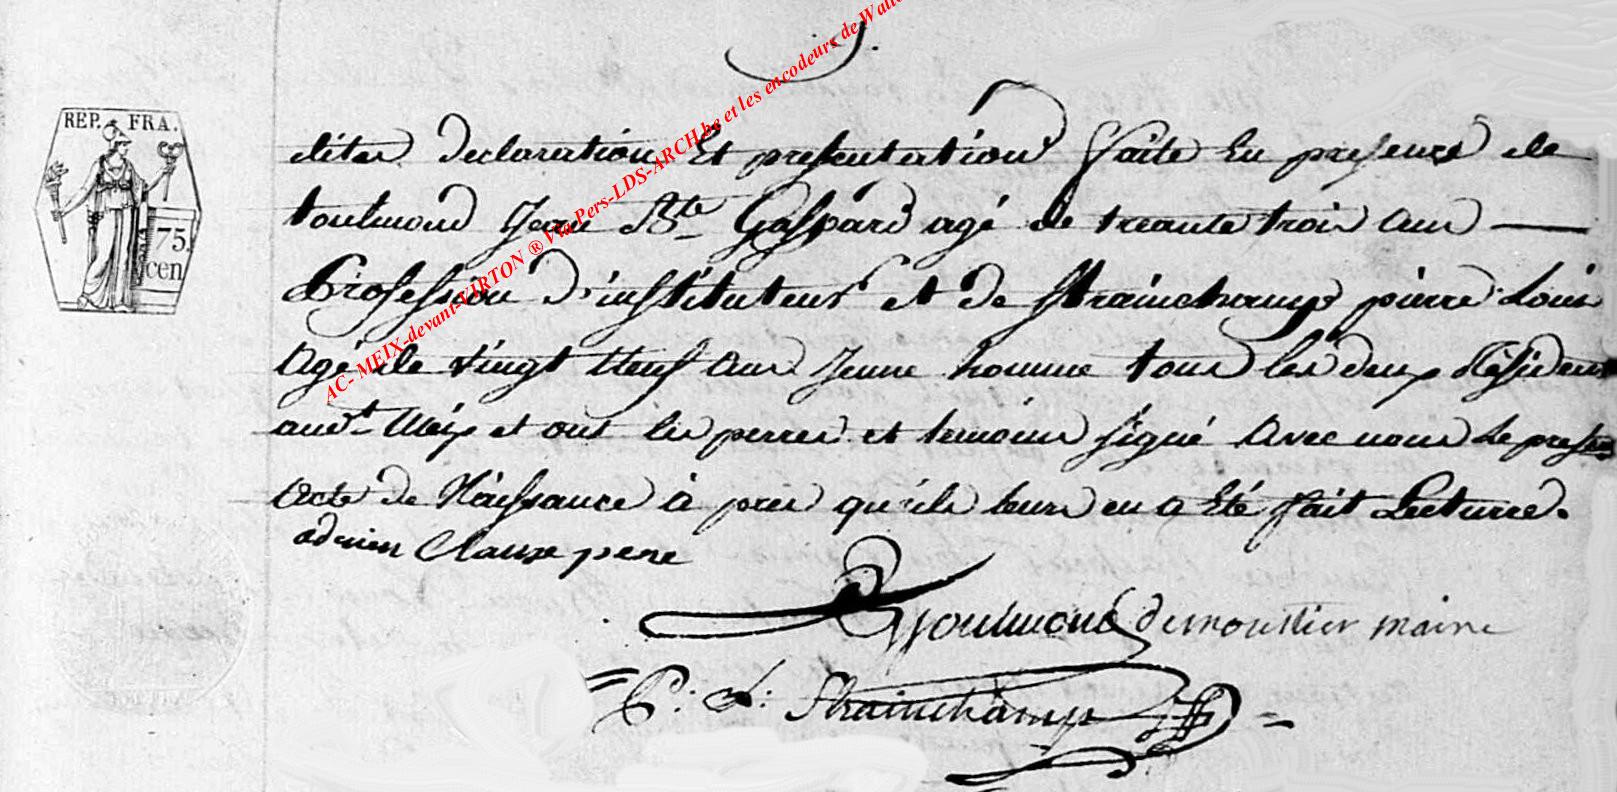 REP. FRA.
75.
cen
AC- MEIX-devant-VIRTON ® Via Pers-LDS-ARCH.be et les encodeurs de
dites declaration Et presentation faite En presence de
toulmond Jean Bte Gaspard agé de treante trois ans
Profession d'instituteur et de Strainchamps pierre Louis
Agé de vingt Neuf ans Jeune homme tous les deux Résidens
audt Meix et ont les perres et temoins signé avec nous Le present
Acte de Naissance à pres qu'ils leurs en a Eté fait Lecturre.
adrien Clausse pere
Toulmond demoustier maire
P. L. Strainchamps